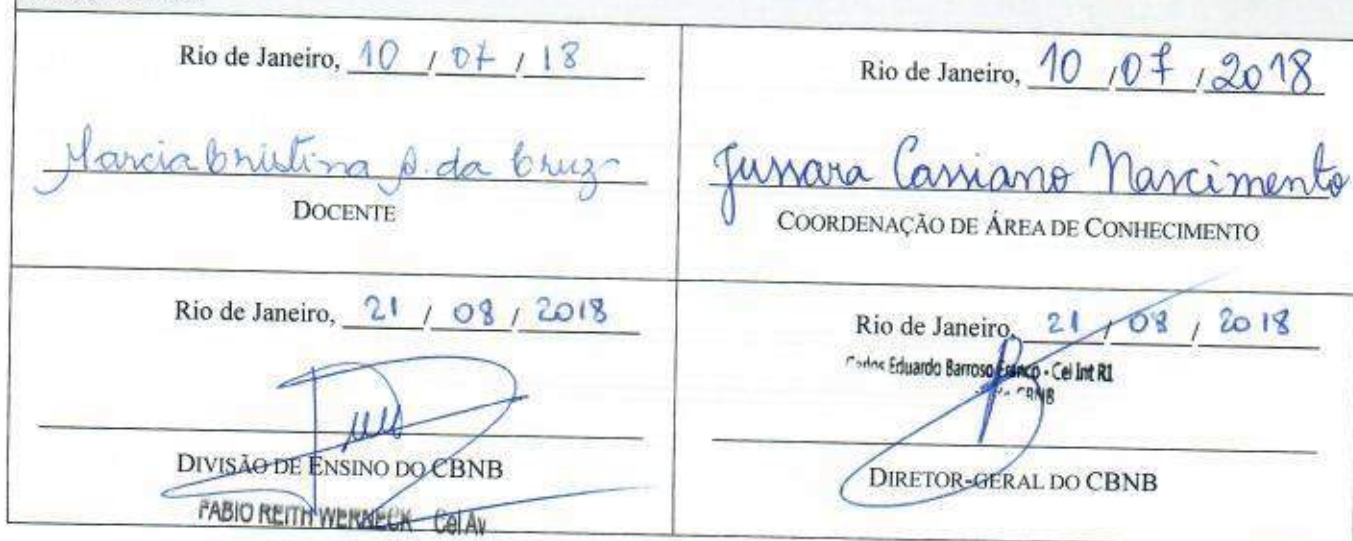 Rio de Janeiro, 10 / 07 / 18
Marcia Cristina S. da Cruz
DOCENTE
Rio de Janeiro, 10 / 07 / 2018
Jussara Cassiano Nascimento
COORDENAÇÃO DE ÁREA DE CONHECIMENTO
Rio de Janeiro, 21 / 08 / 2018
DIVISÃO DE ENSINO DO CBNB
FABIO REITH WERNECK Cel Av
Rio de Janeiro, 21 / 08 / 2018
Carlos Eduardo Barroso Franco - Cel Int R1
CBNB
DIRETOR-GERAL DO CBNB